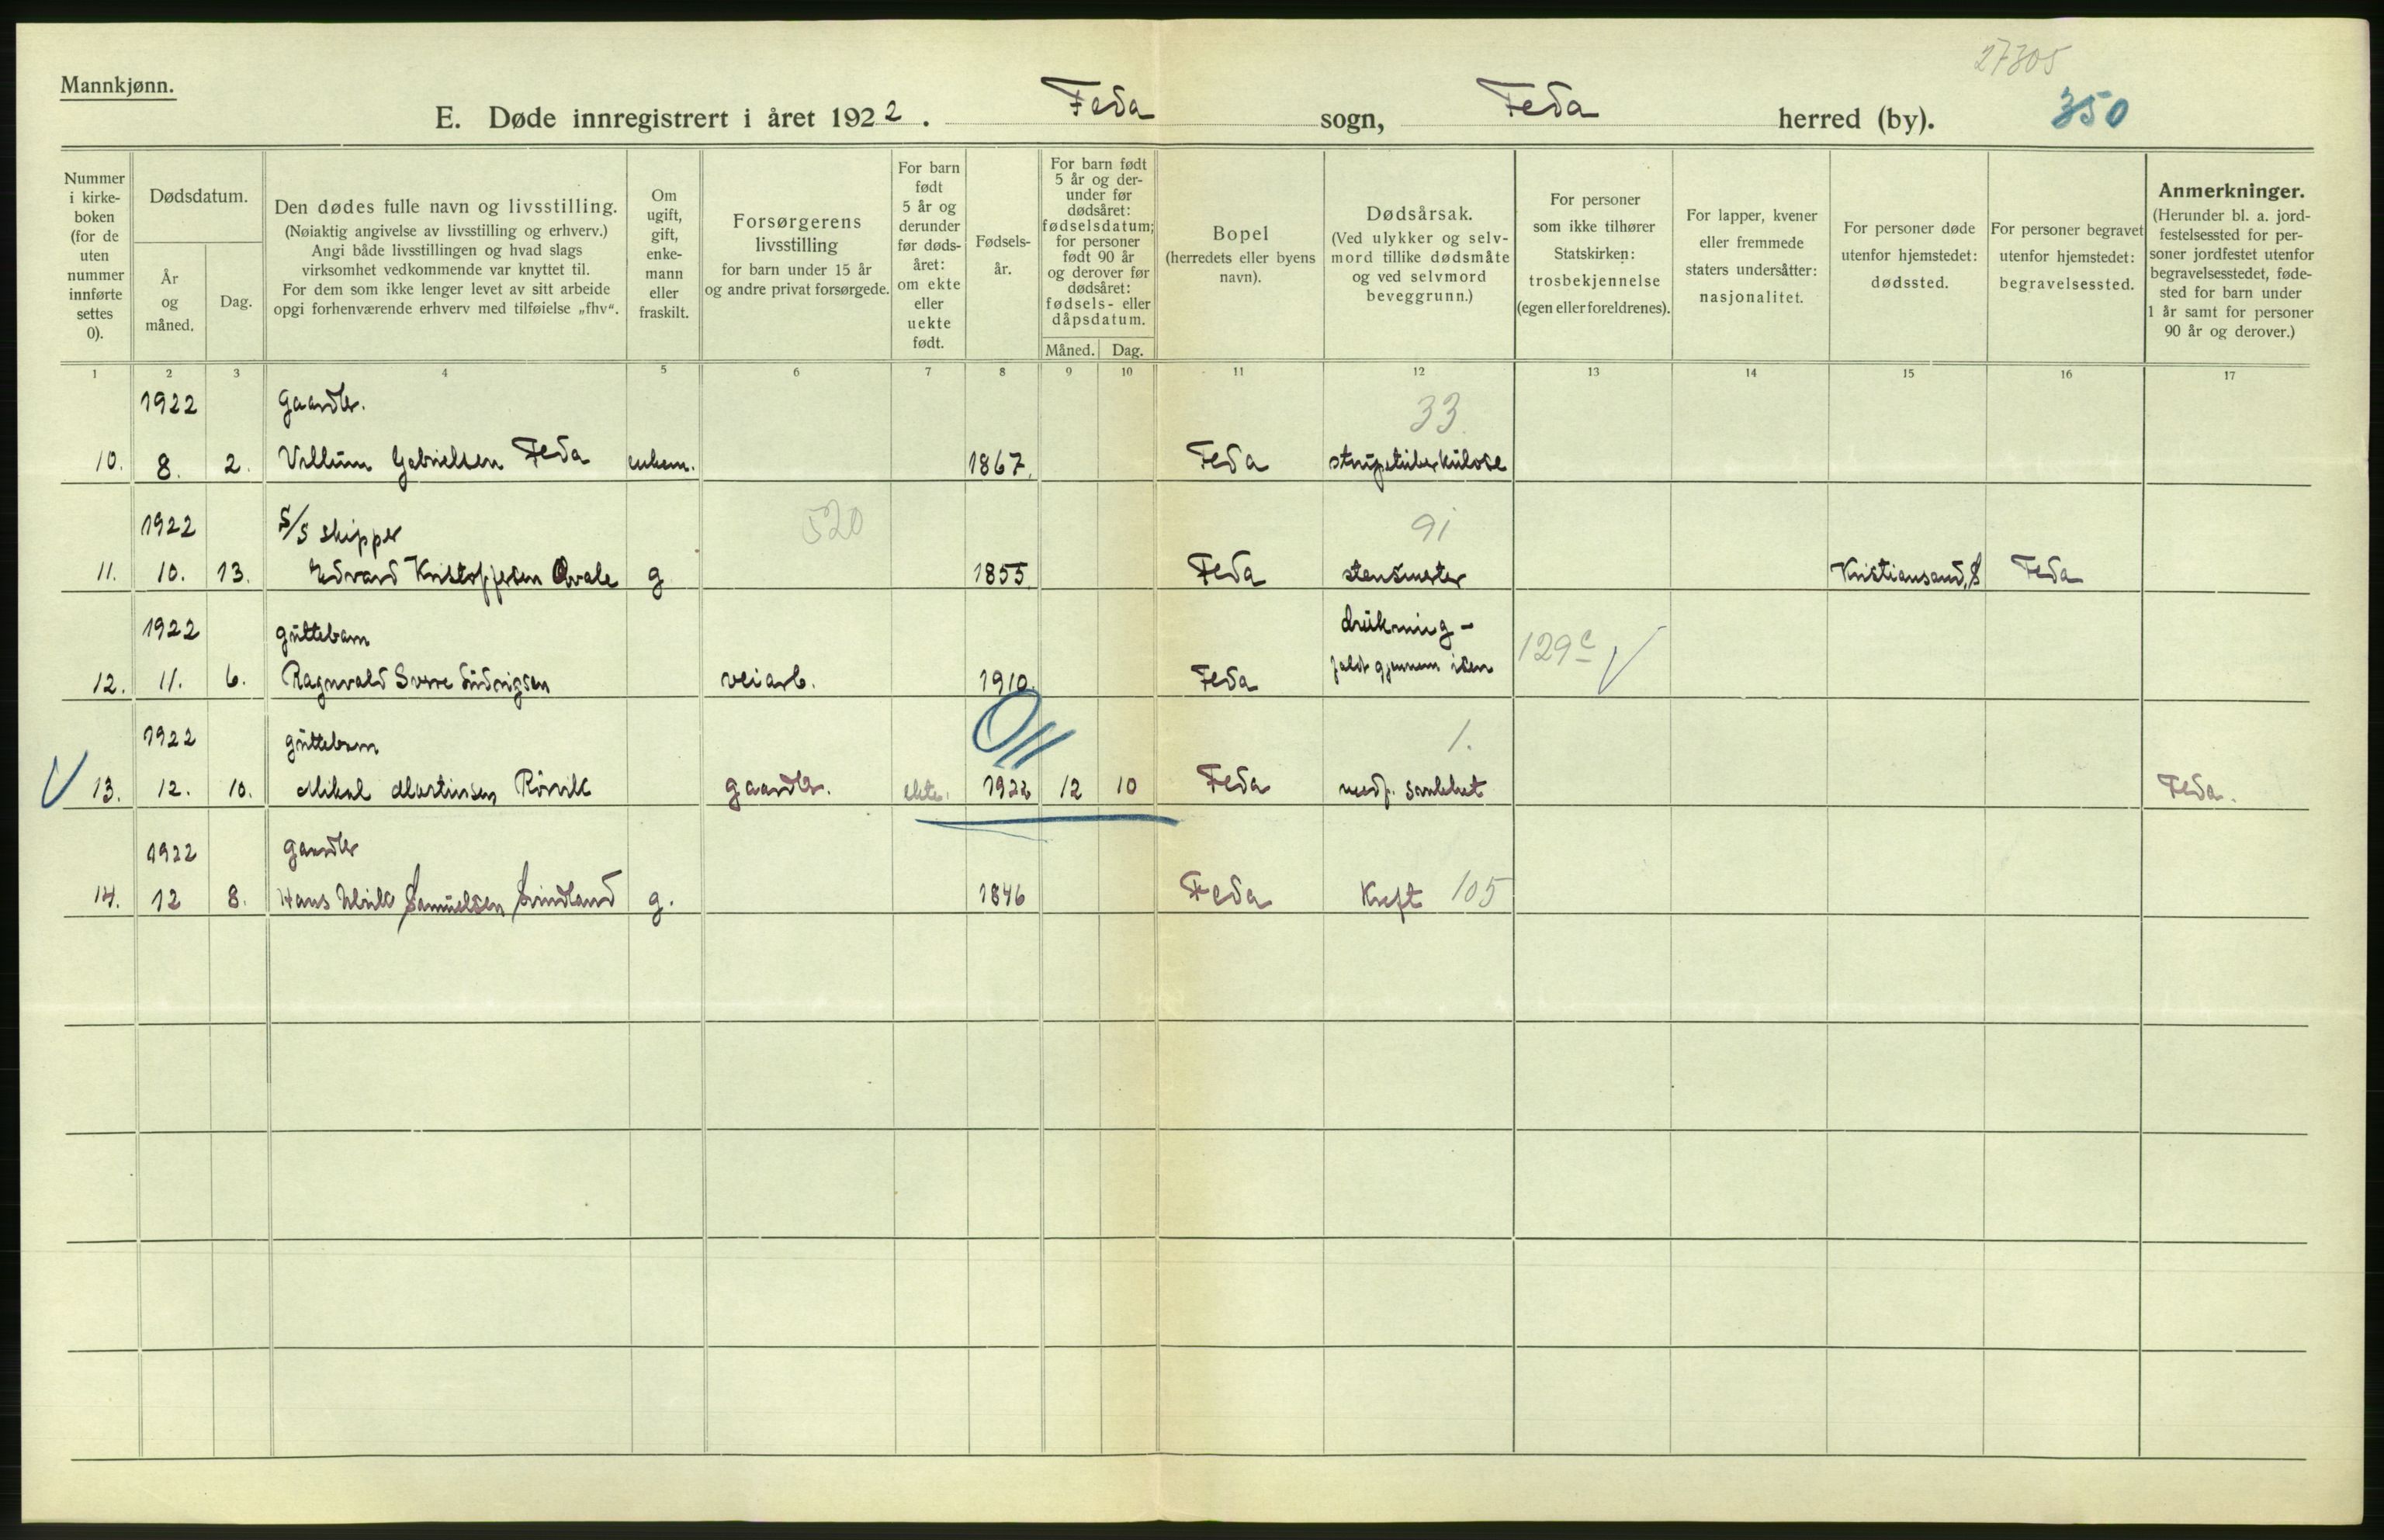 27305
Mannkjønn.
E. Døde innregistrert i året 1922. Feda sogn, Feda herred (by). 350
Nummer i kirke-boken (for de uten nummer innførte settes 0).
Dødsdatum.
År og måned.
Dag.
Den dødes fulle navn og livsstilling.
(Nøiaktig angivelse av livsstilling og erhverv.)
Angi både livsstillingen og hvad slags
virksomhet vedkommende var knyttet til.
For dem som ikke lenger levet av sitt arbeide
opgi forhenværende erhverv med tilføielse „fhv“.
Om ugift, gift, enke-mann eller fraskilt.
Forsørgerens livsstilling
for barn under 15 år
og andre privat forsørgede.
For barn født 5 år og derunder før døds-året: om ekte eller uekte født.
Fødsels-år.
For barn født 5 år og der-under før dødsåret: fødselsdatum; for personer født 90 år og derover før dødsåret: fødsels- eller dåpsdatum.
Måned. Dag.
Bopel
(herredets eller byens navn).
Dødsårsak.
(Ved ulykker og selv-mord tillike dødsmåte og ved selvmord beveggrunn.)
For personer som ikke tilhører Statskirken: trosbekjennelse (egen eller foreldrenes).
For lapper, kvener eller fremmede staters undersåtter: nasjonalitet.
For personer døde utenfor hjemstedet: dødssted.
For personer begravet utenfor hjemstedet: begravelsessted.
Anmerkninger.
(Herunder bl. a. jord-festelsessted for per-soner jordfestet utenfor begravelsesstedet, føde-sted for barn under 1 år samt for personer 90 år og derover.)
1 2 3 4 5 6 7 8 9 10 11 12 13 14 15 16 17
1922 Gaardbr. 33
10. 8. 2. Villum Gabrielsen Feda enkem. 1867. Feda strupetuberkulose
1922 S/S skipper 520 91
11. 10. 13. Edvard Kristoffersen Qvale g 1855 Feda Kristiansand, S Feda
1922 guttebarn drukning -
12. 11. 6. Ragnvald Sverre Ludvigsen veiarb. 1910. Feda faldt gjennem isen 129c
1922 guttebarn 1.
13. 12. 10. Mikal Martinsen Rørvik gaardbr. ekte. 1922 12 10 Feda medf. svakhet Feda.
1922 gaardbr
14. 12 8. Hans Ulrik Samuelsen Svindland g. 1846 Feda Kreft 105